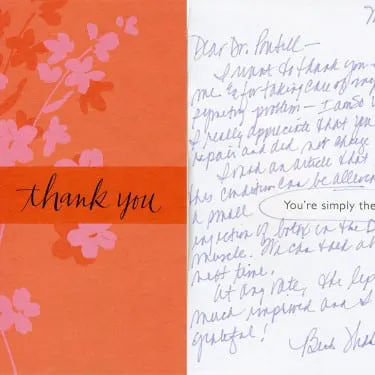 thank you
Dear Dr. Pontell—
I want to thank you
me & for taking care of my
symetry problem— I am so
I really appreciate that you
repair and did not charge
I read an article that
this condition can be
a small
You're simply the
injection of botox in the D
muscle. We can talk ab
next time.
At any rate, the lip
much improved and I
grateful!